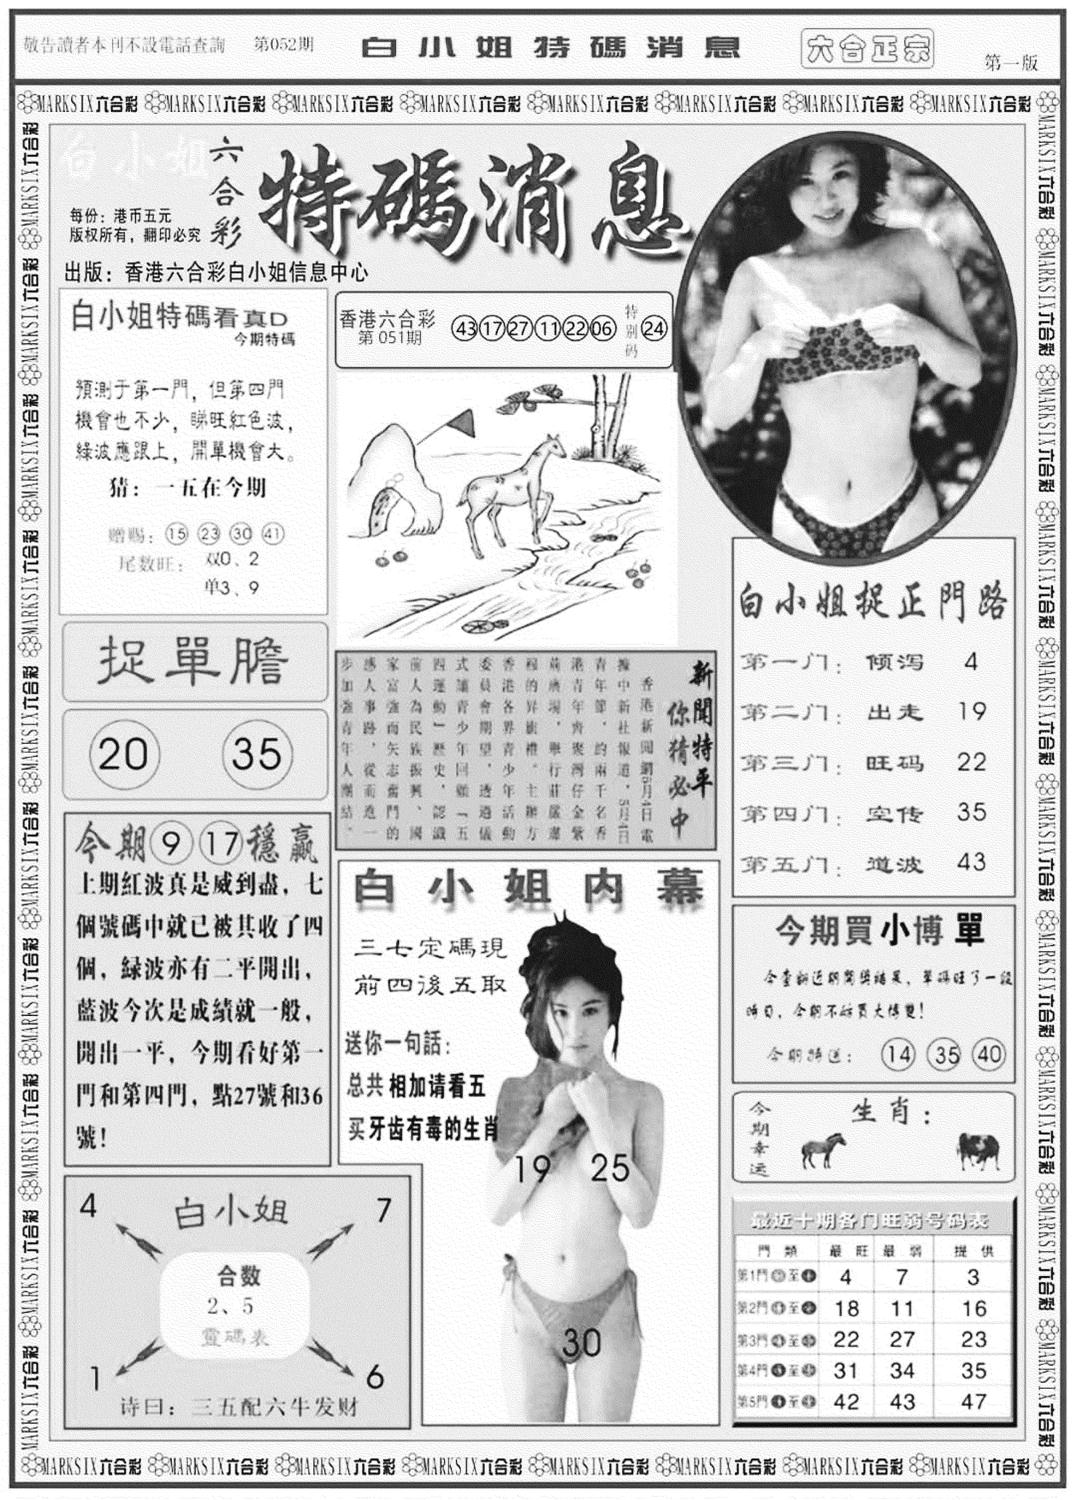 敬告讀者本刊不設電話查詢
第052期
白小姐特碼消息
六合正宗
第一版
MARKSIX六合彩 MARKSIX六合彩 MARKSIX六合彩 MARKSIX六合彩 MARKSIX六合彩 MARKSIX六合彩 MARKSIX六合彩 MARKSIX六合彩
白小姐
六合彩
特碼消息
每份：港币五元
版权所有，翻印必究
出版：香港六合彩白小姐信息中心
白小姐特碼看真D
今期特碼
預測于第一門，但第四門
機會也不少，睇旺紅色波，
綠波應跟上，開單機會大。
猜：一五在今期
赠赐：15 23 30 41
尾数旺：双0、2
单3、9
香港六合彩
第 051期
43 17 27 11 22 06
特别码
24
捉單膽
20 35
新聞特平
你猜必中
香港新聞網5月4日電
據中新社報道，5月4日
青年節，約兩千名香
港青年齊聚灣仔金紫
荊廣場，舉行莊嚴肅
穆的昇旗禮。主辦方
香港各界青少年活動
委員會期望，透過儀
式讓青少年回顧「五
四運動」歷史，認識
前人為民族振興、國
家富強而矢志奮鬥的
感人事跡，從而進一
步加強青年人團結。
白小姐捉正門路
第一门：倾泻 4
第二门：出走 19
第三门：旺码 22
第四门：空传 35
第五门：道波 43
今期 9 17 穩贏
上期紅波真是威到盡，七
個號碼中就已被其收了四
個，緑波亦有二平開出，
藍波今次是成績就一般，
開出一平，今期看好第一
門和第四門，點27號和36
號！
白小姐内幕
三七定碼現
前四後五取
送你一句話：
总共相加请看五
买牙齿有毒的生肖
19 25
30
今期買小博單
今查新近期開獎結果，單碼旺了一段
時日，今期不妨買大博雙！
今期特送：14 35 40
今期幸运
生肖：
4 7
白小姐
合数
2、5
靈碼表
1 6
诗曰：三五配六牛发财
最近十期各门旺弱号码表
門類 最旺 最弱 提供
第1門 至 4 7 3
第2門 至 18 11 16
第3門 至 22 27 23
第4門 至 31 34 35
第5門 至 42 43 47
MARKSIX六合彩 MARKSIX六合彩 MARKSIX六合彩 MARKSIX六合彩 MARKSIX六合彩 MARKSIX六合彩 MARKSIX六合彩 MARKSIX六合彩